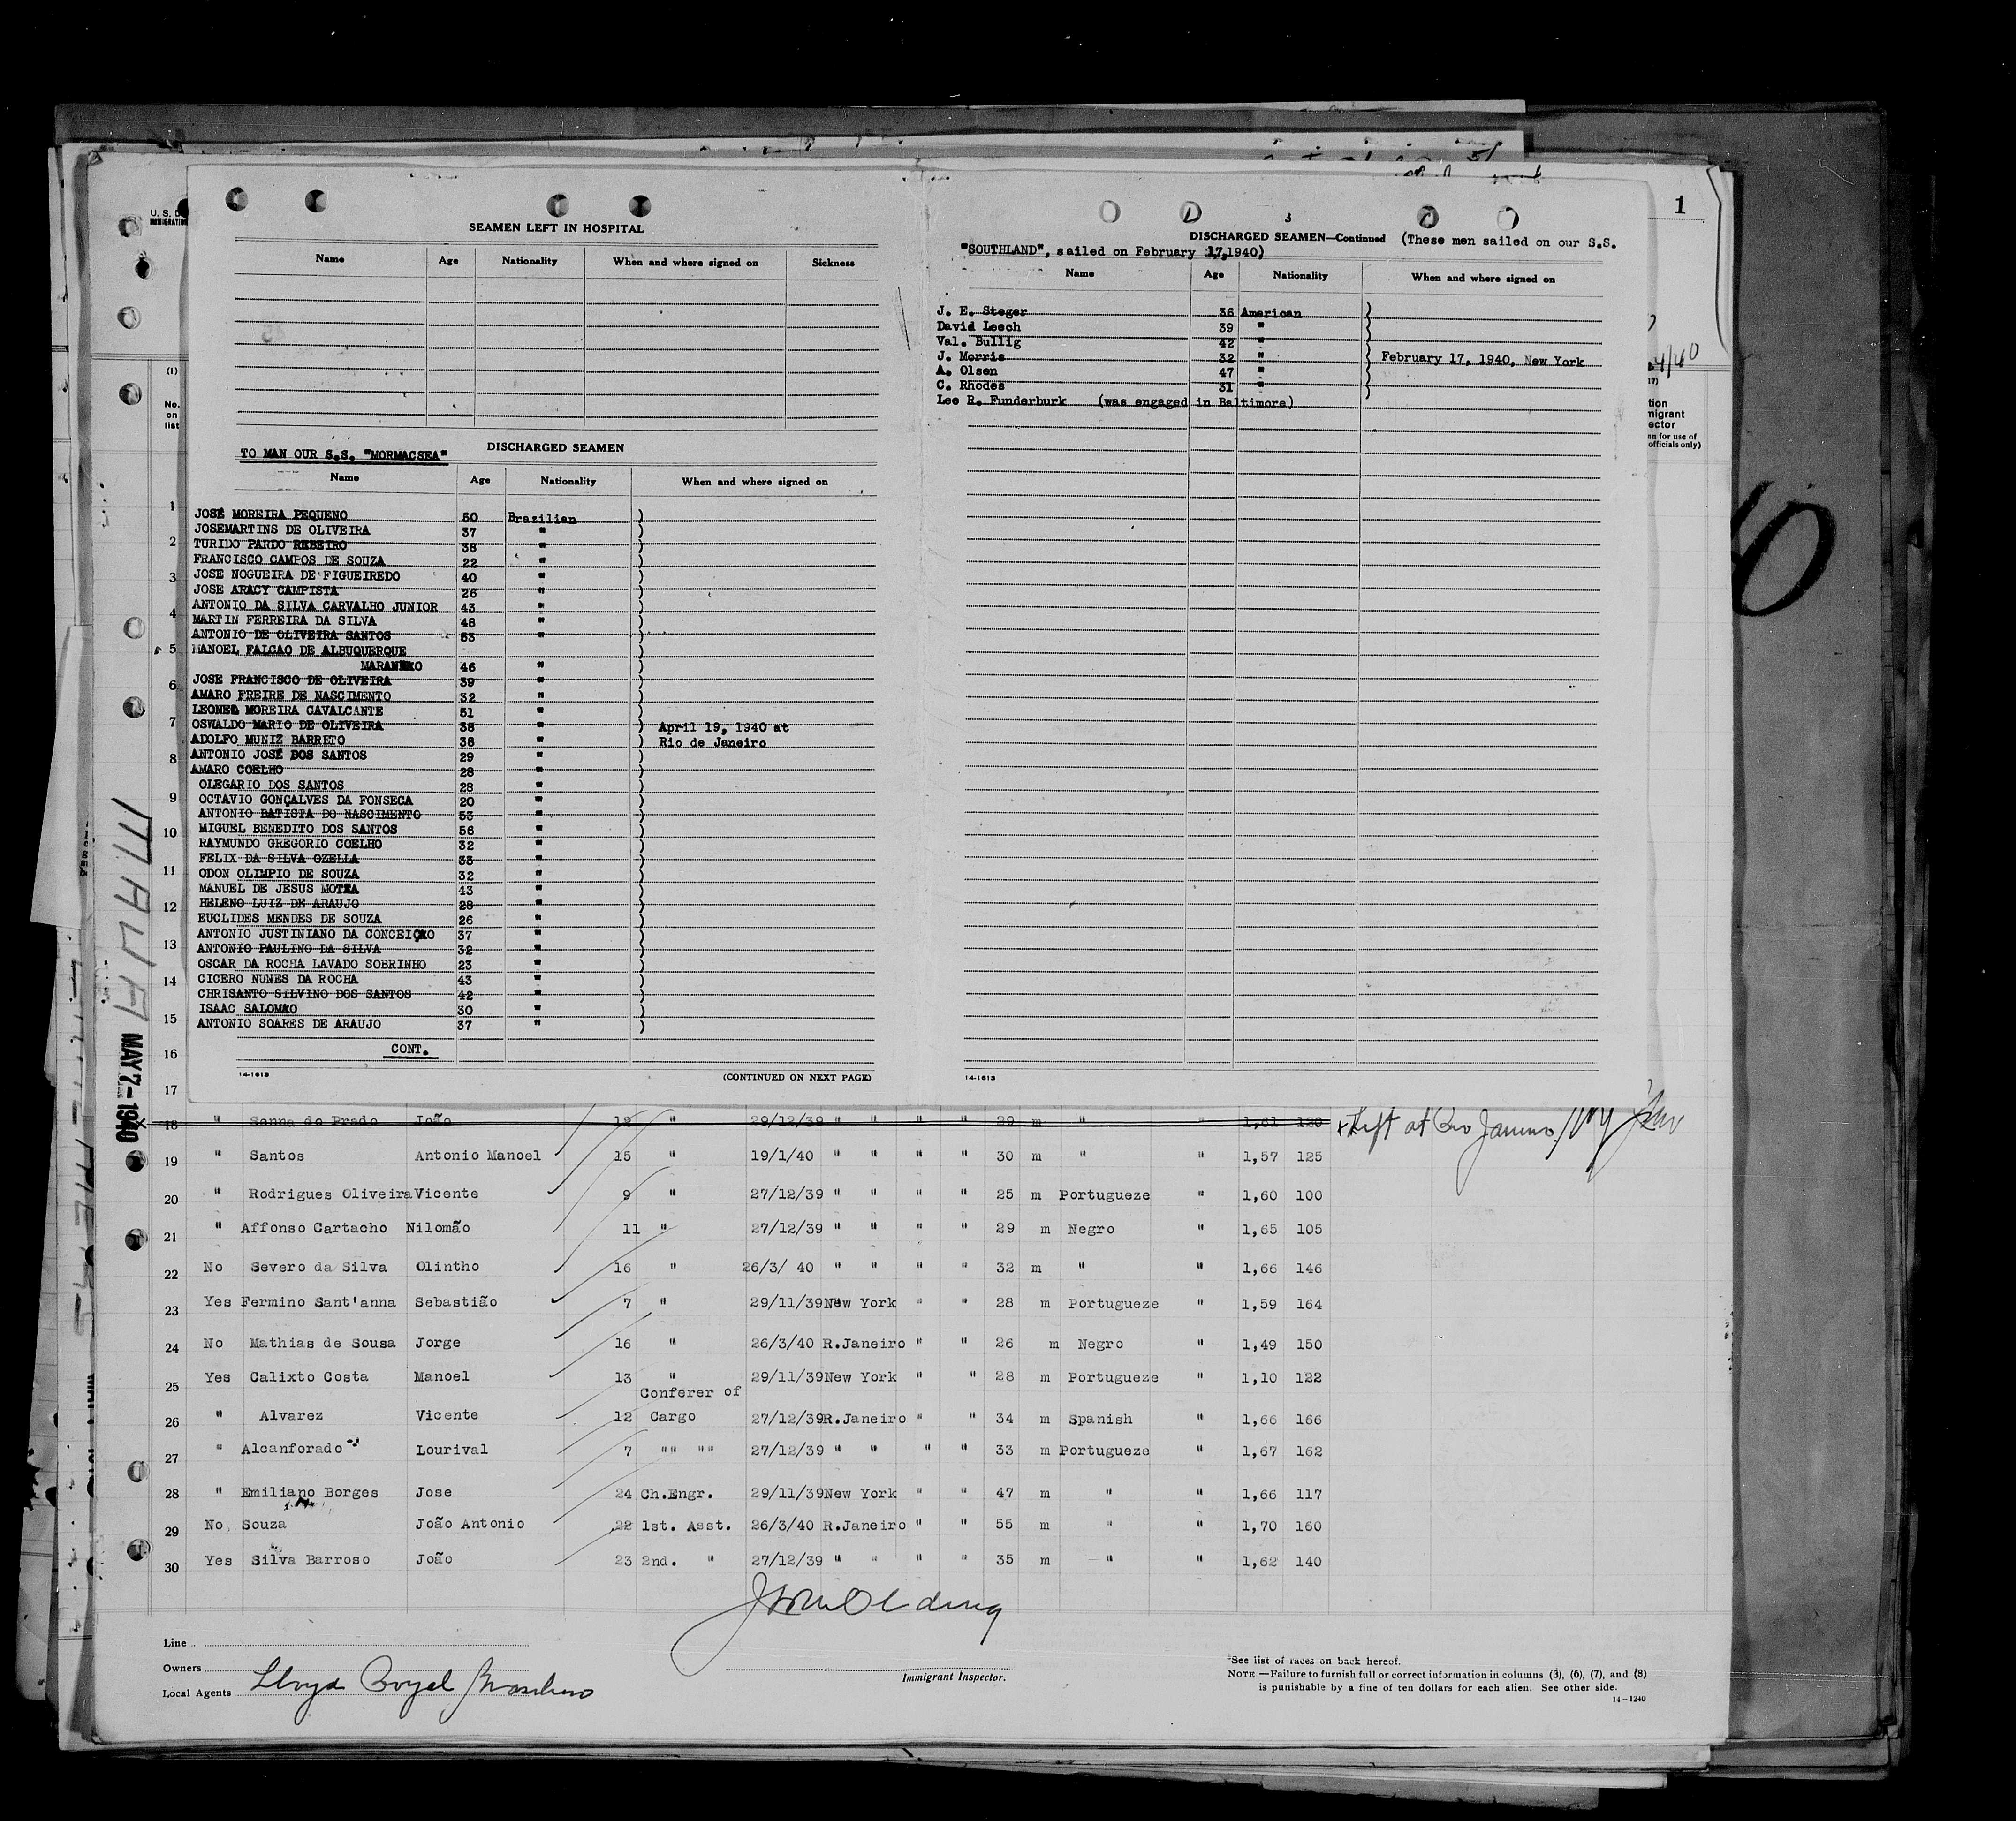 1
U. S. D
IMMIGRATION
SEAMEN LEFT IN HOSPITAL
Name Age Nationality When and where signed on Sickness
DISCHARGED SEAMEN
TO MAN OUR S.S. "MORMACSEA"
Name Age Nationality When and where signed on
JOSÉ MOREIRA PEQUENO 50 Brazilian )
JOSEMARTINS DE OLIVEIRA 37 " )
TURIDO PARDO REBEIRO 38 " )
FRANCISCO CAMPOS DE SOUZA 22 " )
JOSE NOGUEIRA DE FIGUEIREDO 40 " )
JOSE ARACY CAMPISTA 26 " )
ANTONIO DA SILVA CARVALHO JUNIOR 43 " )
MARTIN FERREIRA DA SILVA 48 " )
ANTONIO DE OLIVEIRA SANTOS 53 " )
MANOEL FALCAO DE ALBUQUERQUE )
MARANHAO 46 " )
JOSE FRANCISCO DE OLIVEIRA 39 " )
AMARO FREIRE DE NASCIMENTO 32 " )
LEONEL MOREIRA CAVALCANTE 51 " )
OSWALDO MARIO DE OLIVEIRA 38 " ) April 19, 1940 at
ADOLFO MUNIZ BARRETO 38 " ) Rio de Janeiro
ANTONIO JOSÉ DOS SANTOS 29 " )
AMARO COELHO 28 " )
OLEGARIO DOS SANTOS 28 " )
OCTAVIO GONÇALVES DA FONSECA 20 " )
ANTONIO BATISTA DO NASCIMENTO 53 " )
MIGUEL BENEDITO DOS SANTOS 56 " )
RAYMUNDO GREGORIO COELHO 32 " )
FELIX DA SILVA OZELLA 33 " )
ODON OLIMPIO DE SOUZA 32 " )
MANUEL DE JESUS MOTTA 43 " )
HELENO LUIZ DE ARAUJO 28 " )
EUCLIDES MENDES DE SOUZA 26 " )
ANTONIO JUSTINIANO DA CONCEIÇAO 37 " )
ANTONIO PAULINO DA SILVA 32 " )
OSCAR DA ROCHA LAVADO SOBRINHO 23 " )
CICERO NUNES DA ROCHA 43 " )
CHRISANTO SILVINO DOS SANTOS 42 " )
ISAAC SALOMAO 30 " )
ANTONIO SOARES DE ARAUJO 37 " )
CONT.
14-1613 (CONTINUED ON NEXT PAGE)
3
DISCHARGED SEAMEN—Continued (These men sailed on our S.S.
"SOUTHLAND", sailed on February 17,1940)
Name Age Nationality When and where signed on
J. E. Steger 36 American )
David Leech 39 " )
Val. Bullig 42 " )
J. Morris 32 " ) February 17, 1940, New York
A. Olsen 47 " )
C. Rhodes 31 " )
Lee R. Funderburk (was engaged in Baltimore)
14-1613
(1)
No.
on
list
1
2
3
4
5
6
7
8
9
10
11
12
13
14
15
16
17
MAUA
MAY 7-1940
18 " Senna do Prado João 12 " 29/12/39 " " " " 29 m " " 1,61 120 x Left at Rio Janeiro
19 " Santos Antonio Manoel 15 " 19/1/40 " " " " 30 m " " 1,57 125
20 " Rodrigues Oliveira Vicente 9 " 27/12/39 " " " " 25 m Portugueze " 1,60 100
21 " Affonso Cartacho Nilomão 11 " 27/12/39 " " " " 29 m Negro " 1,65 105
22 No Severo da Silva Olintho 16 " 26/3/ 40 " " " " 32 m " " 1,66 146
23 Yes Fermino Sant'anna Sebastião 7 " 29/11/39 New York " " 28 m Portugueze " 1,59 164
24 No Mathias de Sousa Jorge 16 " 26/3/40 R.Janeiro " " 26 m Negro " 1,49 150
25 Yes Calixto Costa Manoel 13 " 29/11/39 New York " " 28 m Portugueze " 1,10 122
Conferer of
26 " Alvarez Vicente 12 Cargo 27/12/39 R.Janeiro " " 34 m Spanish " 1,66 166
27 " Alcanforado Lourival 7 "" "" 27/12/39 " " " " 33 m Portugueze " 1,67 162
28 " Emiliano Borges Jose 24 Ch.Engr. 29/11/39 New York " " 47 m " " 1,66 117
29 No Souza João Antonio 22 1st. Asst. 26/3/40 R.Janeiro " " 55 m " " 1,70 160
30 Yes Silva Barroso João 23 2nd. " 27/12/39 " " " " 35 m " " 1,62 140
Line
Owners
Local Agents Lloyd Brasileiro
Immigrant Inspector.
See list of races on back hereof.
NOTE.—Failure to furnish full or correct information in columns (3), (6), (7), and (8)
is punishable by a fine of ten dollars for each alien. See other side.
14-1240